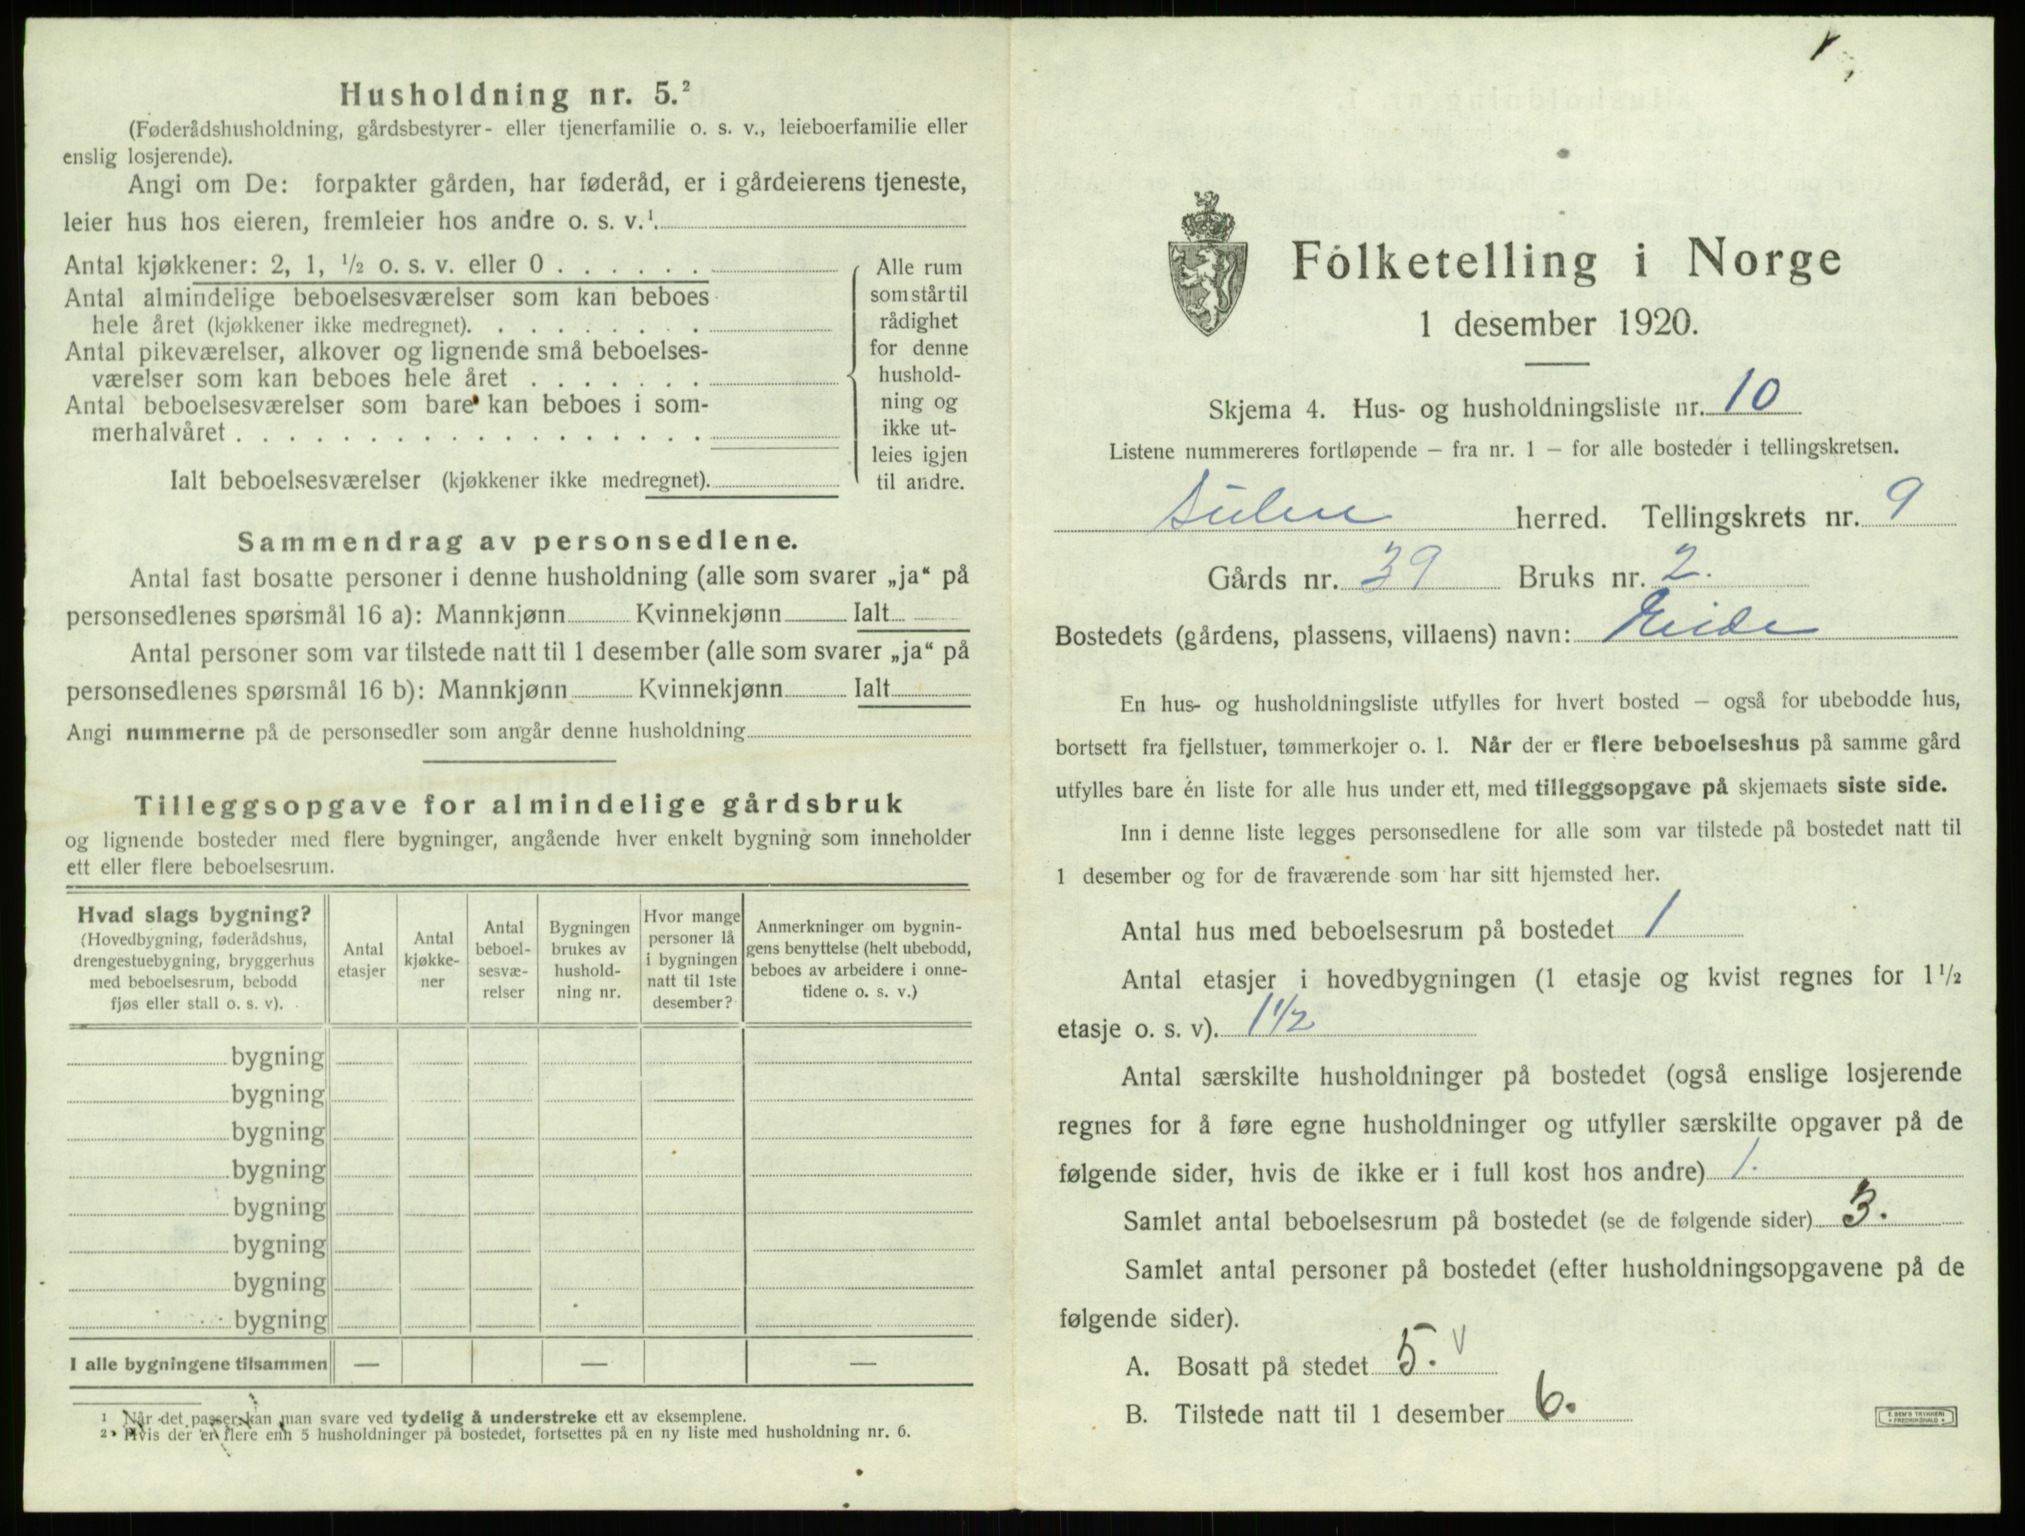 Husholdning nr. 5.²
(Føderådshusholdning, gårdsbestyrer- eller tjenerfamilie o. s. v., leieboerfamilie eller
enslig losjerende).
Angi om De: forpakter gården, har føderåd, er i gårdeierens tjeneste,
leier hus hos eieren, fremleier hos andre o. s. v.¹
Antal kjøkkener: 2, 1, ½ o. s. v. eller 0
Antal almindelige beboelsesværelser som kan beboes
hele året (kjøkkener ikke medregnet).
Antal pikeværelser, alkover og lignende små beboelses-
værelser som kan beboes hele året
Antal beboelsesværelser som bare kan beboes i som-
merhalvåret
Ialt beboelsesværelser (kjøkkener ikke medregnet).
Alle rum
som står til
rådighet
for denne
hushold-
ning og
ikke ut-
leies igjen
til andre.
Sammendrag av personsedlene.
Antal fast bosatte personer i denne husholdning (alle som svarer „ja“ på
personsedlenes spørsmål 16 a): Mannkjønn Kvinnekjønn Ialt
Antal personer som var tilstede natt til 1 desember (alle som svarer „ja“ på
personsedlenes spørsmål 16 b): Mannkjønn Kvinnekjønn Ialt
Angi nummerne på de personsedler som angår denne husholdning
Tilleggsopgave for almindelige gårdsbruk
og lignende bosteder med flere bygninger, angående hver enkelt bygning som inneholder
ett eller flere beboelsesrum.
Hvad slags bygning?
(Hovedbygning, føderådshus,
drengestuebygning, bryggerhus
med beboelsesrum, bebodd
fjøs eller stall o. s. v).
Antal
etasjer
Antal
kjøkke-
ner
Antal
beboel-
sesvæ-
relser
Bygningen
brukes av
hushold-
ning nr.
Hvor mange
personer lå
i bygningen
natt til 1ste
desember?
Anmerkninger om bygnin-
gens benyttelse (helt ubebodd,
beboes av arbeidere i onne-
tidene o. s. v.)
bygning
bygning
bygning
bygning
bygning
bygning
bygning
bygning
I alle bygningene tilsammen — — —
¹ Når det passer kan man svare ved tydelig å understreke ett av eksemplene.
² Hvis der er flere enn 5 husholdninger på bostedet, fortsettes på en ny liste med husholdning nr. 6.
Folketelling i Norge
1 desember 1920.
Skjema 4. Hus- og husholdningsliste nr. 10
Listene nummereres fortløpende — fra nr. 1 — for alle bosteder i tellingskretsen.
Sulen herred. Tellingskrets nr. 9
Gårds nr. 39 Bruks nr. 2.
Bostedets (gårdens, plassens, villaens) navn: Eide
En hus- og husholdningsliste utfylles for hvert bosted — også for ubebodde hus,
bortsett fra fjellstuer, tømmerkojer o. l. Når der er flere beboelseshus på samme gård
utfylles bare én liste for alle hus under ett, med tilleggsopgave på skjemaets siste side.
Inn i denne liste legges personsedlene for alle som var tilstede på bostedet natt til
1 desember og for de fraværende som har sitt hjemsted her.
Antal hus med beboelsesrum på bostedet 1
Antal etasjer i hovedbygningen (1 etasje og kvist regnes for 1½
etasje o. s. v). 1½
Antal særskilte husholdninger på bostedet (også enslige losjerende
regnes for å føre egne husholdninger og utfyller særskilte opgaver på de
følgende sider, hvis de ikke er i full kost hos andre) 1.
Samlet antal beboelsesrum på bostedet (se de følgende sider) 3.
Samlet antal personer på bostedet (efter husholdningsopgavene på de
følgende sider).
A. Bosatt på stedet 5. v
B. Tilstede natt til 1 desember 6.